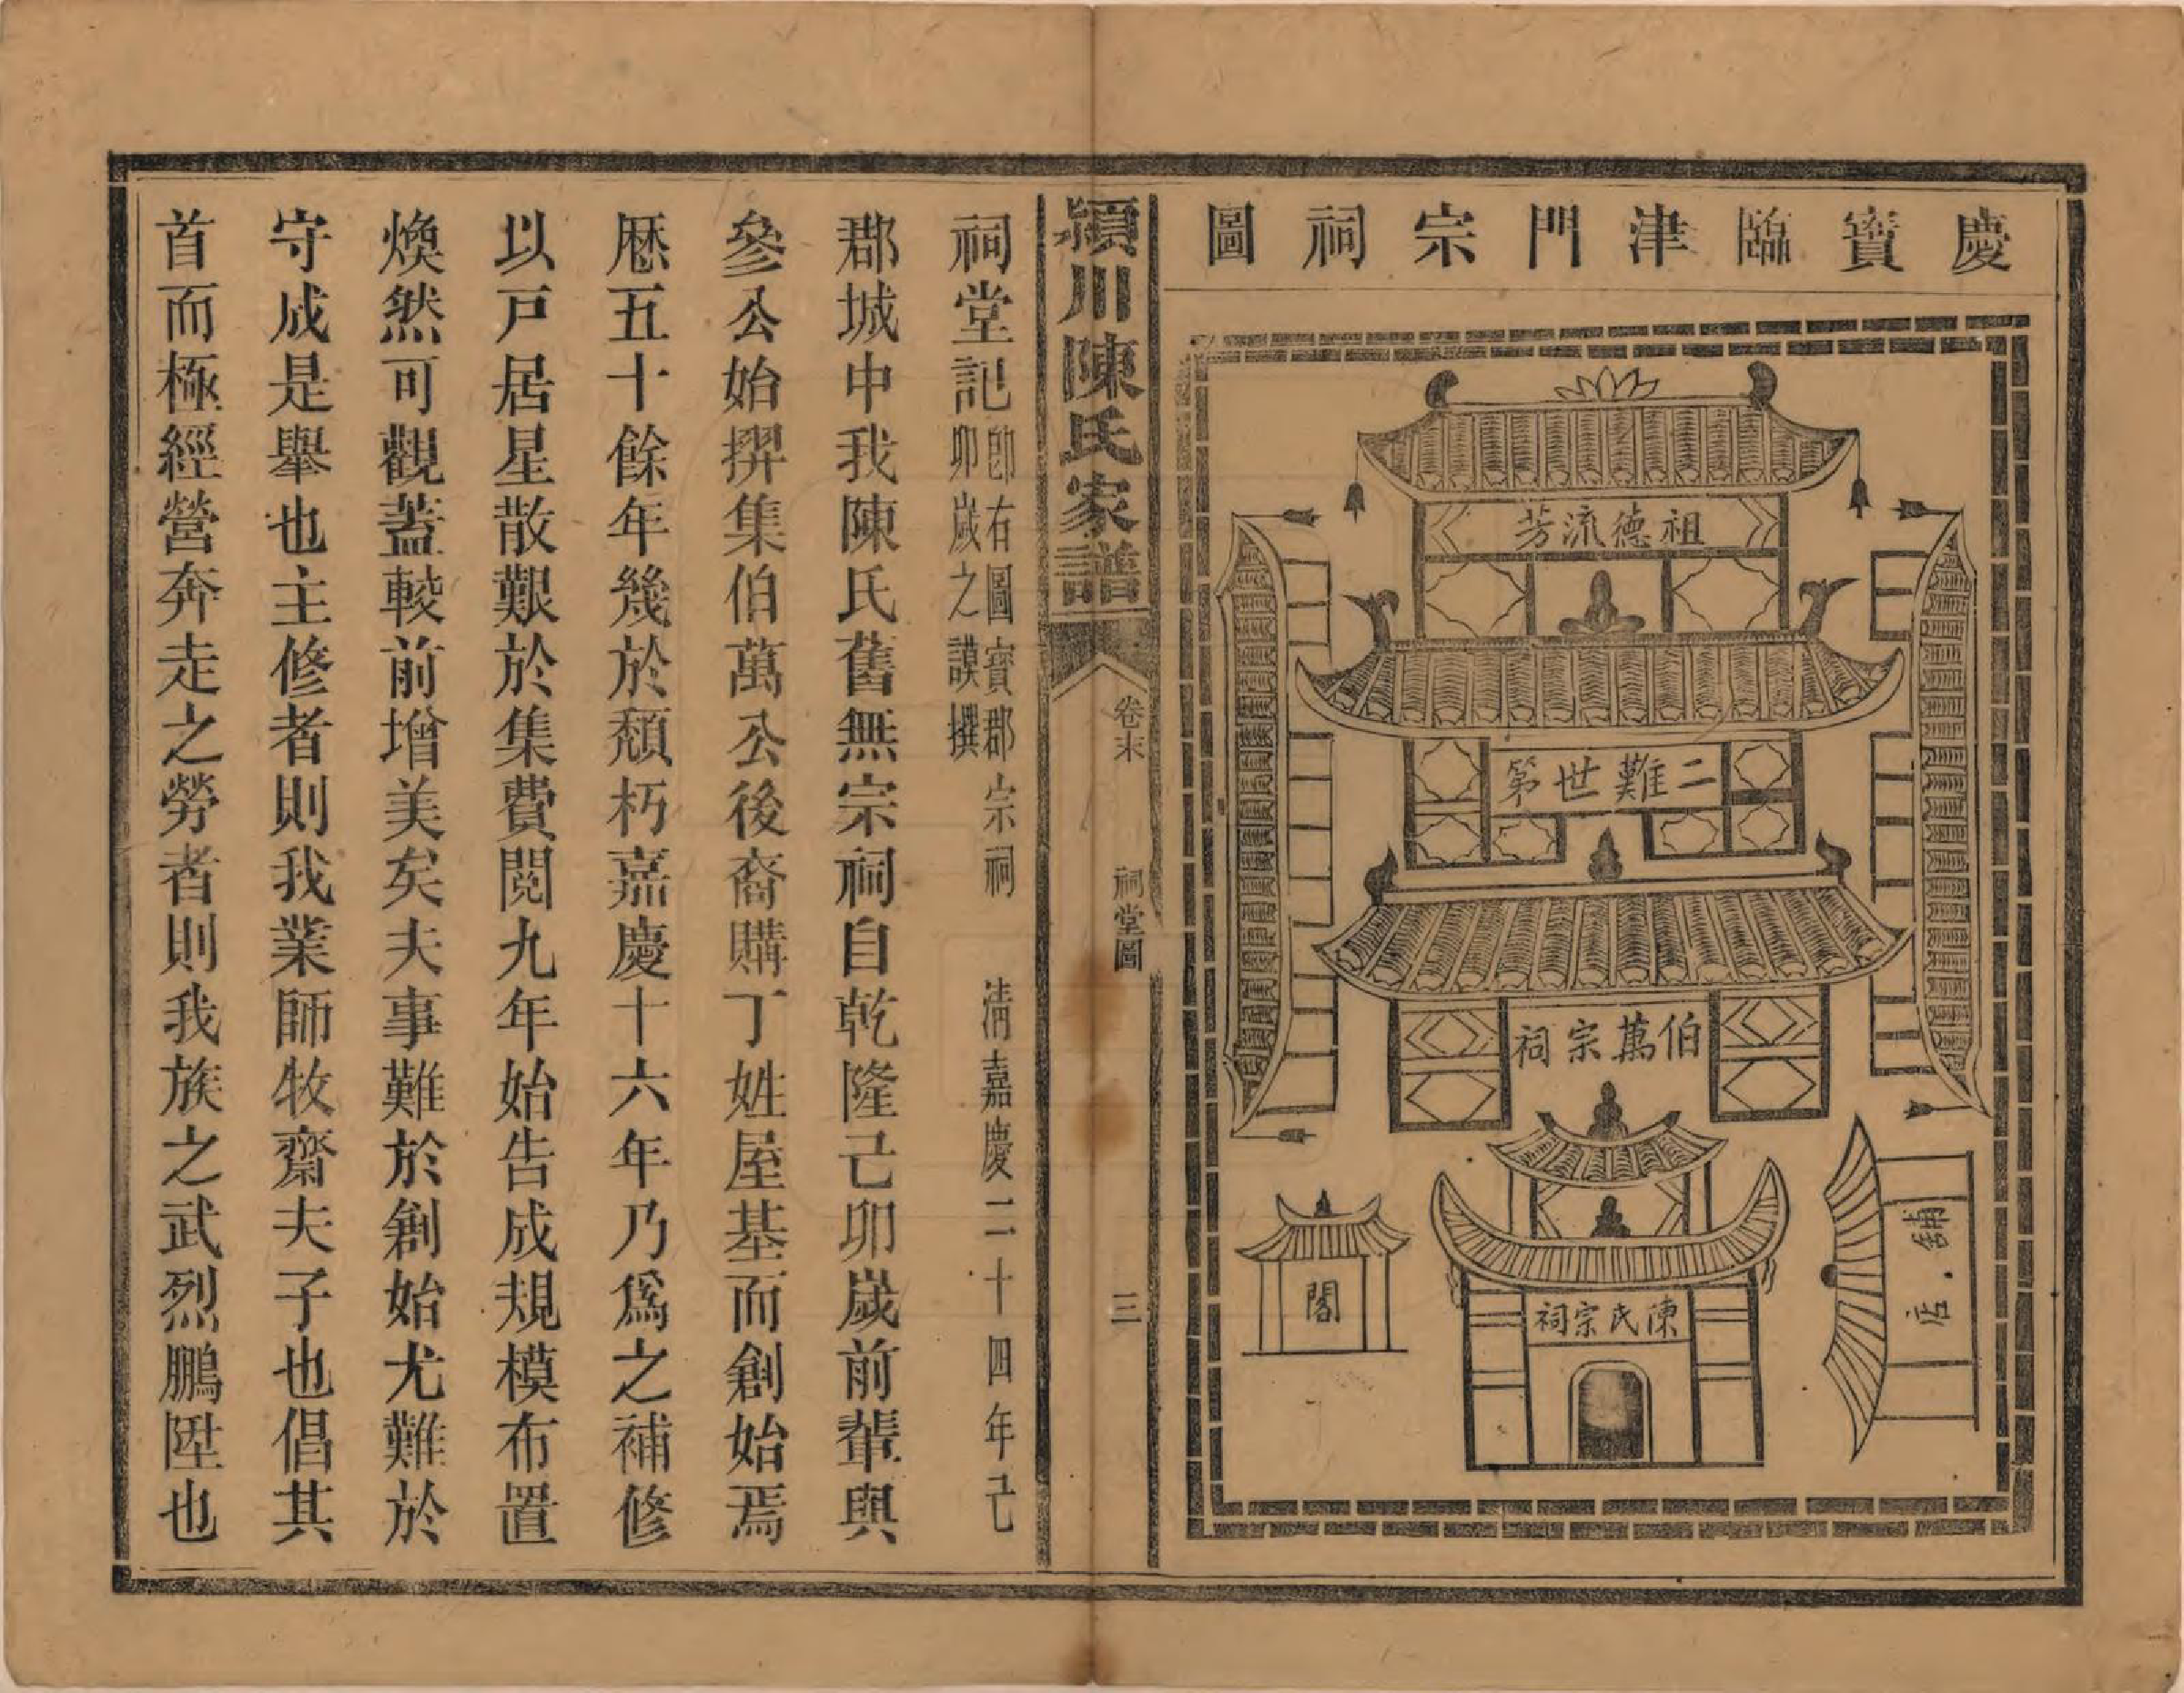 慶寶臨津門宗祠圖
祖德流芳
二難世第
伯萬宗祠
陳氏宗祠
閣
鋪店
潁川陳氏家譜
卷末
祠堂圖
三
祠堂記
卽右圖寶郡宗祠 清嘉慶二十四年己
卯歲之謨撰
郡城中我陳氏舊無宗祠自乾隆己卯歲前輩與
參公始揑集伯萬公後裔購丁姓屋基而創始焉
歷五十餘年幾於頹朽嘉慶十六年乃爲之補修
以戸居星散艱於集費閱九年始告成規模布置
煥然可觀蓋較前增美矣夫事難於創始尤難於
守成是舉也主修者則我業師牧齋夫子也倡其
首而極經營奔走之勞者則我族之武烈鵬陞也